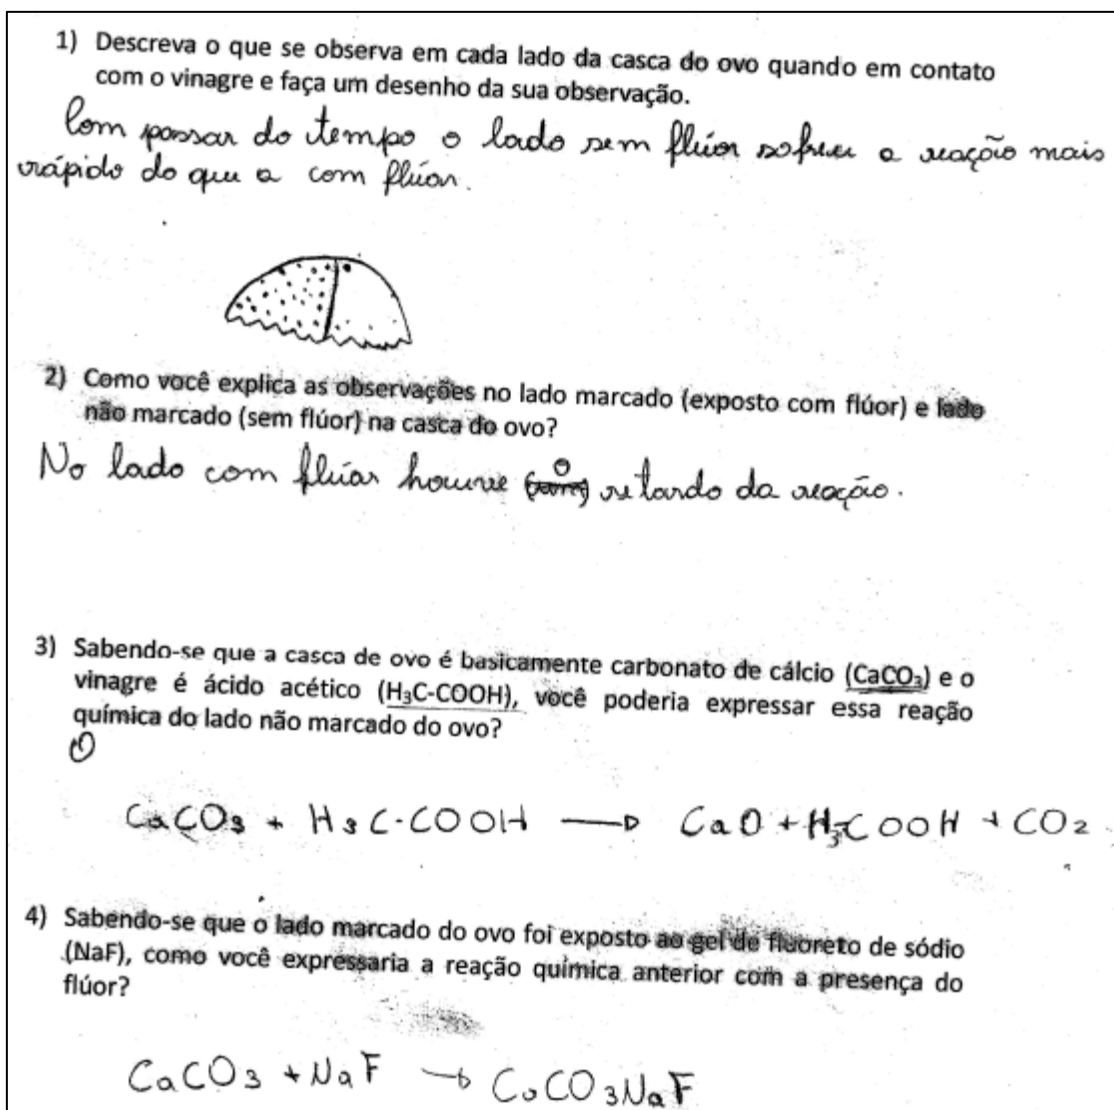 1) Descreva o que se observa em cada lado da casca do ovo quando em contato
com o vinagre e faça um desenho da sua observação.
Com passar do tempo o lado sem flúor sofreu a reação mais
rápido do que a com flúor.
2) Como você explica as observações no lado marcado (exposto com flúor) e lado
não marcado (sem flúor) na casca do ovo?
No lado com flúor houve o retardo da reação.
3) Sabendo-se que a casca de ovo é basicamente carbonato de cálcio (CaCO₃) e o
vinagre é ácido acético (H₃C-COOH), você poderia expressar essa reação
química do lado não marcado do ovo?
CaCO₃ + H₃C-COOH → CaO + H₃COOH + CO₂
4) Sabendo-se que o lado marcado do ovo foi exposto ao gel de fluoreto de sódio
(NaF), como você expressaria a reação química anterior com a presença do
flúor?
CaCO₃ + NaF → CaCO₃NaF